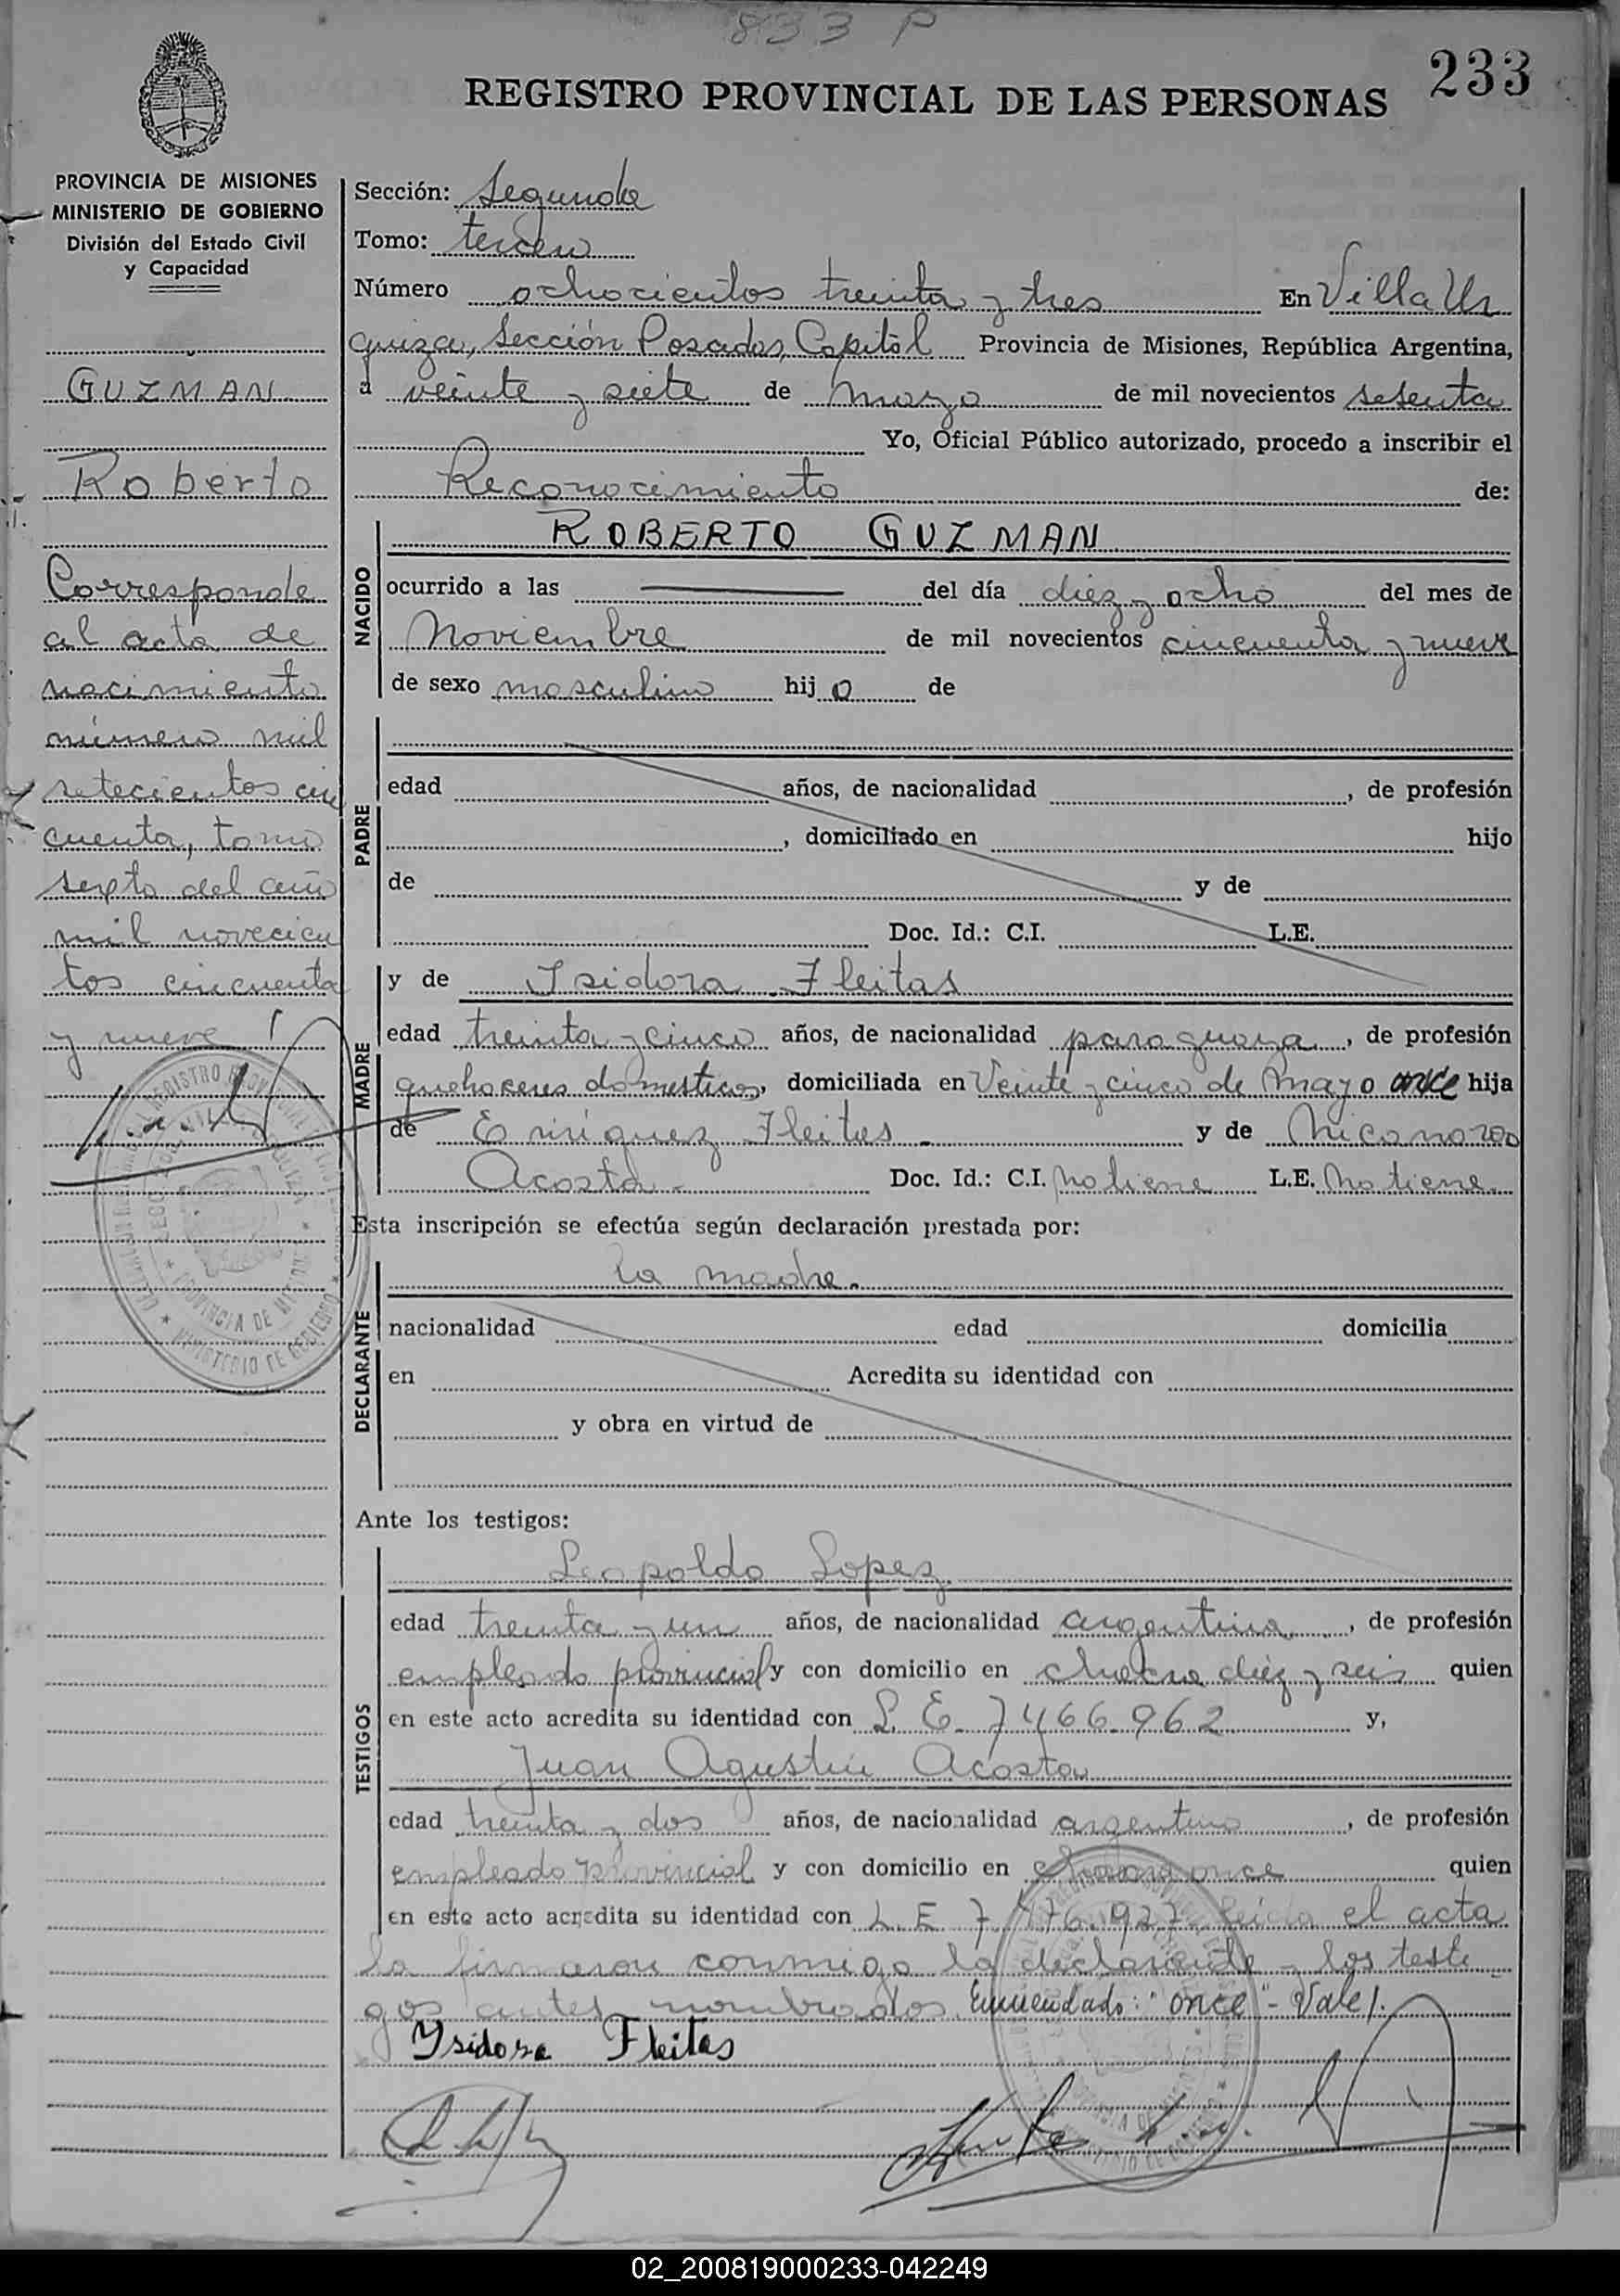 833 P
233
REGISTRO PROVINCIAL DE LAS PERSONAS
PROVINCIA DE MISIONES
MINISTERIO DE GOBIERNO
División del Estado Civil
y Capacidad
GUZMAN
Roberto
Corresponde
al acta de
nacimiento
número mil
setecientos cin
cuenta, tomo
sexto del año
mil novecien
tos cincuenta
y nueve
Sección: Segunda
Tomo: tercero
Número ochocientos treinta y tres En Villa Ur
quiza, Sección Posadas, Capital Provincia de Misiones, República Argentina,
a veinte y siete de mayo de mil novecientos sesenta
Yo, Oficial Público autorizado, procedo a inscribir el
Reconocimiento de:
NACIDO
ROBERTO GUZMAN
ocurrido a las del día diez y ocho del mes de
Noviembre de mil novecientos cincuenta y nueve
de sexo masculino hijo de
PADRE
edad años, de nacionalidad , de profesión
, domiciliado en hijo
de y de
Doc. Id.: C.I. L.E.
MADRE
y de Isidora Fleitas
edad treinta y cinco años, de nacionalidad paraguaya, de profesión
quehaceres domesticos, domiciliada en Veinte y cinco de Mayo once hija
de Enriquez Fleitas - y de Nicanora
Acosta - Doc. Id.: C.I. No tiene L.E. No tiene
Esta inscripción se efectúa según declaración prestada por:
DECLARANTE
la madre.
nacionalidad edad domicilia
en Acredita su identidad con
y obra en virtud de
Ante los testigos:
TESTIGOS
Leopoldo Lopez
edad treinta y un años, de nacionalidad argentina, de profesión
empleado provincial y con domicilio en chacra diez y seis quien
en este acto acredita su identidad con L. E. 7466.962 y,
Juan Agustin Acosta
edad treinta y dos años, de nacionalidad argentino, de profesión
empleado provincial y con domicilio en chacra once quien
en este acto acredita su identidad con L. E 7.476.927 leida el acta
la firmaron conmigo la declarante y los testi
gos antes nombrados. Enmendado: "once" - Vale.
Ysidora Fleitas
02_200819000233-042249